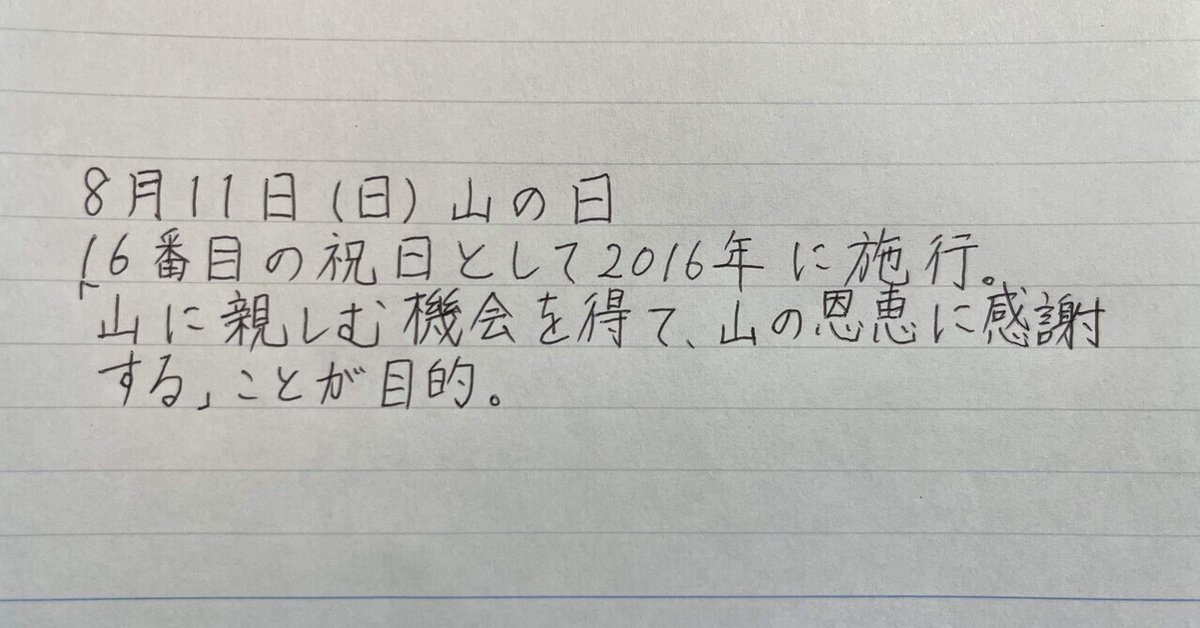 8月11日(日)山の日
16番目の祝日として2016年に施行。
「山に親しむ機会を得て、山の恩恵に感謝
する」ことが目的。